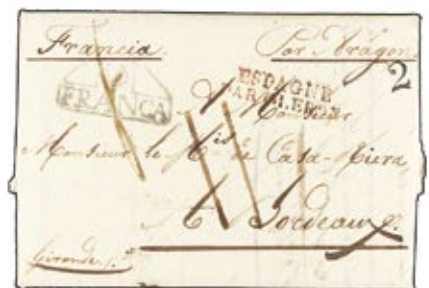 Francia. Por Aragon
2
FRANCA
ESPAGNE
PAR
A Monsieur
Monsieur le M.is de Casa-Riera,
à Bordeaux.
Gironde